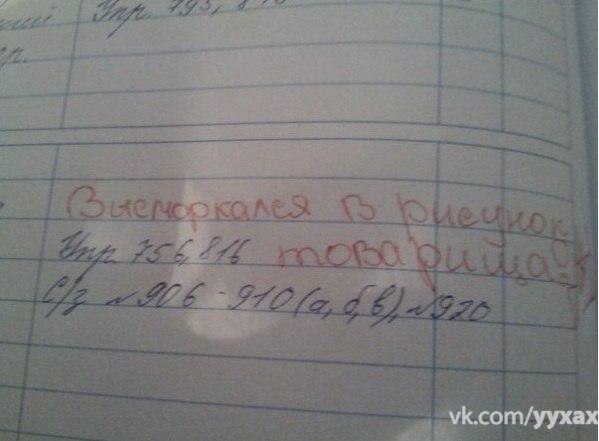 Упр. 793, 8
Высморкался в рисунок
Упр 756,816 товарища
С/з №906-910(а,б,в), №920
vk.com/yyxax